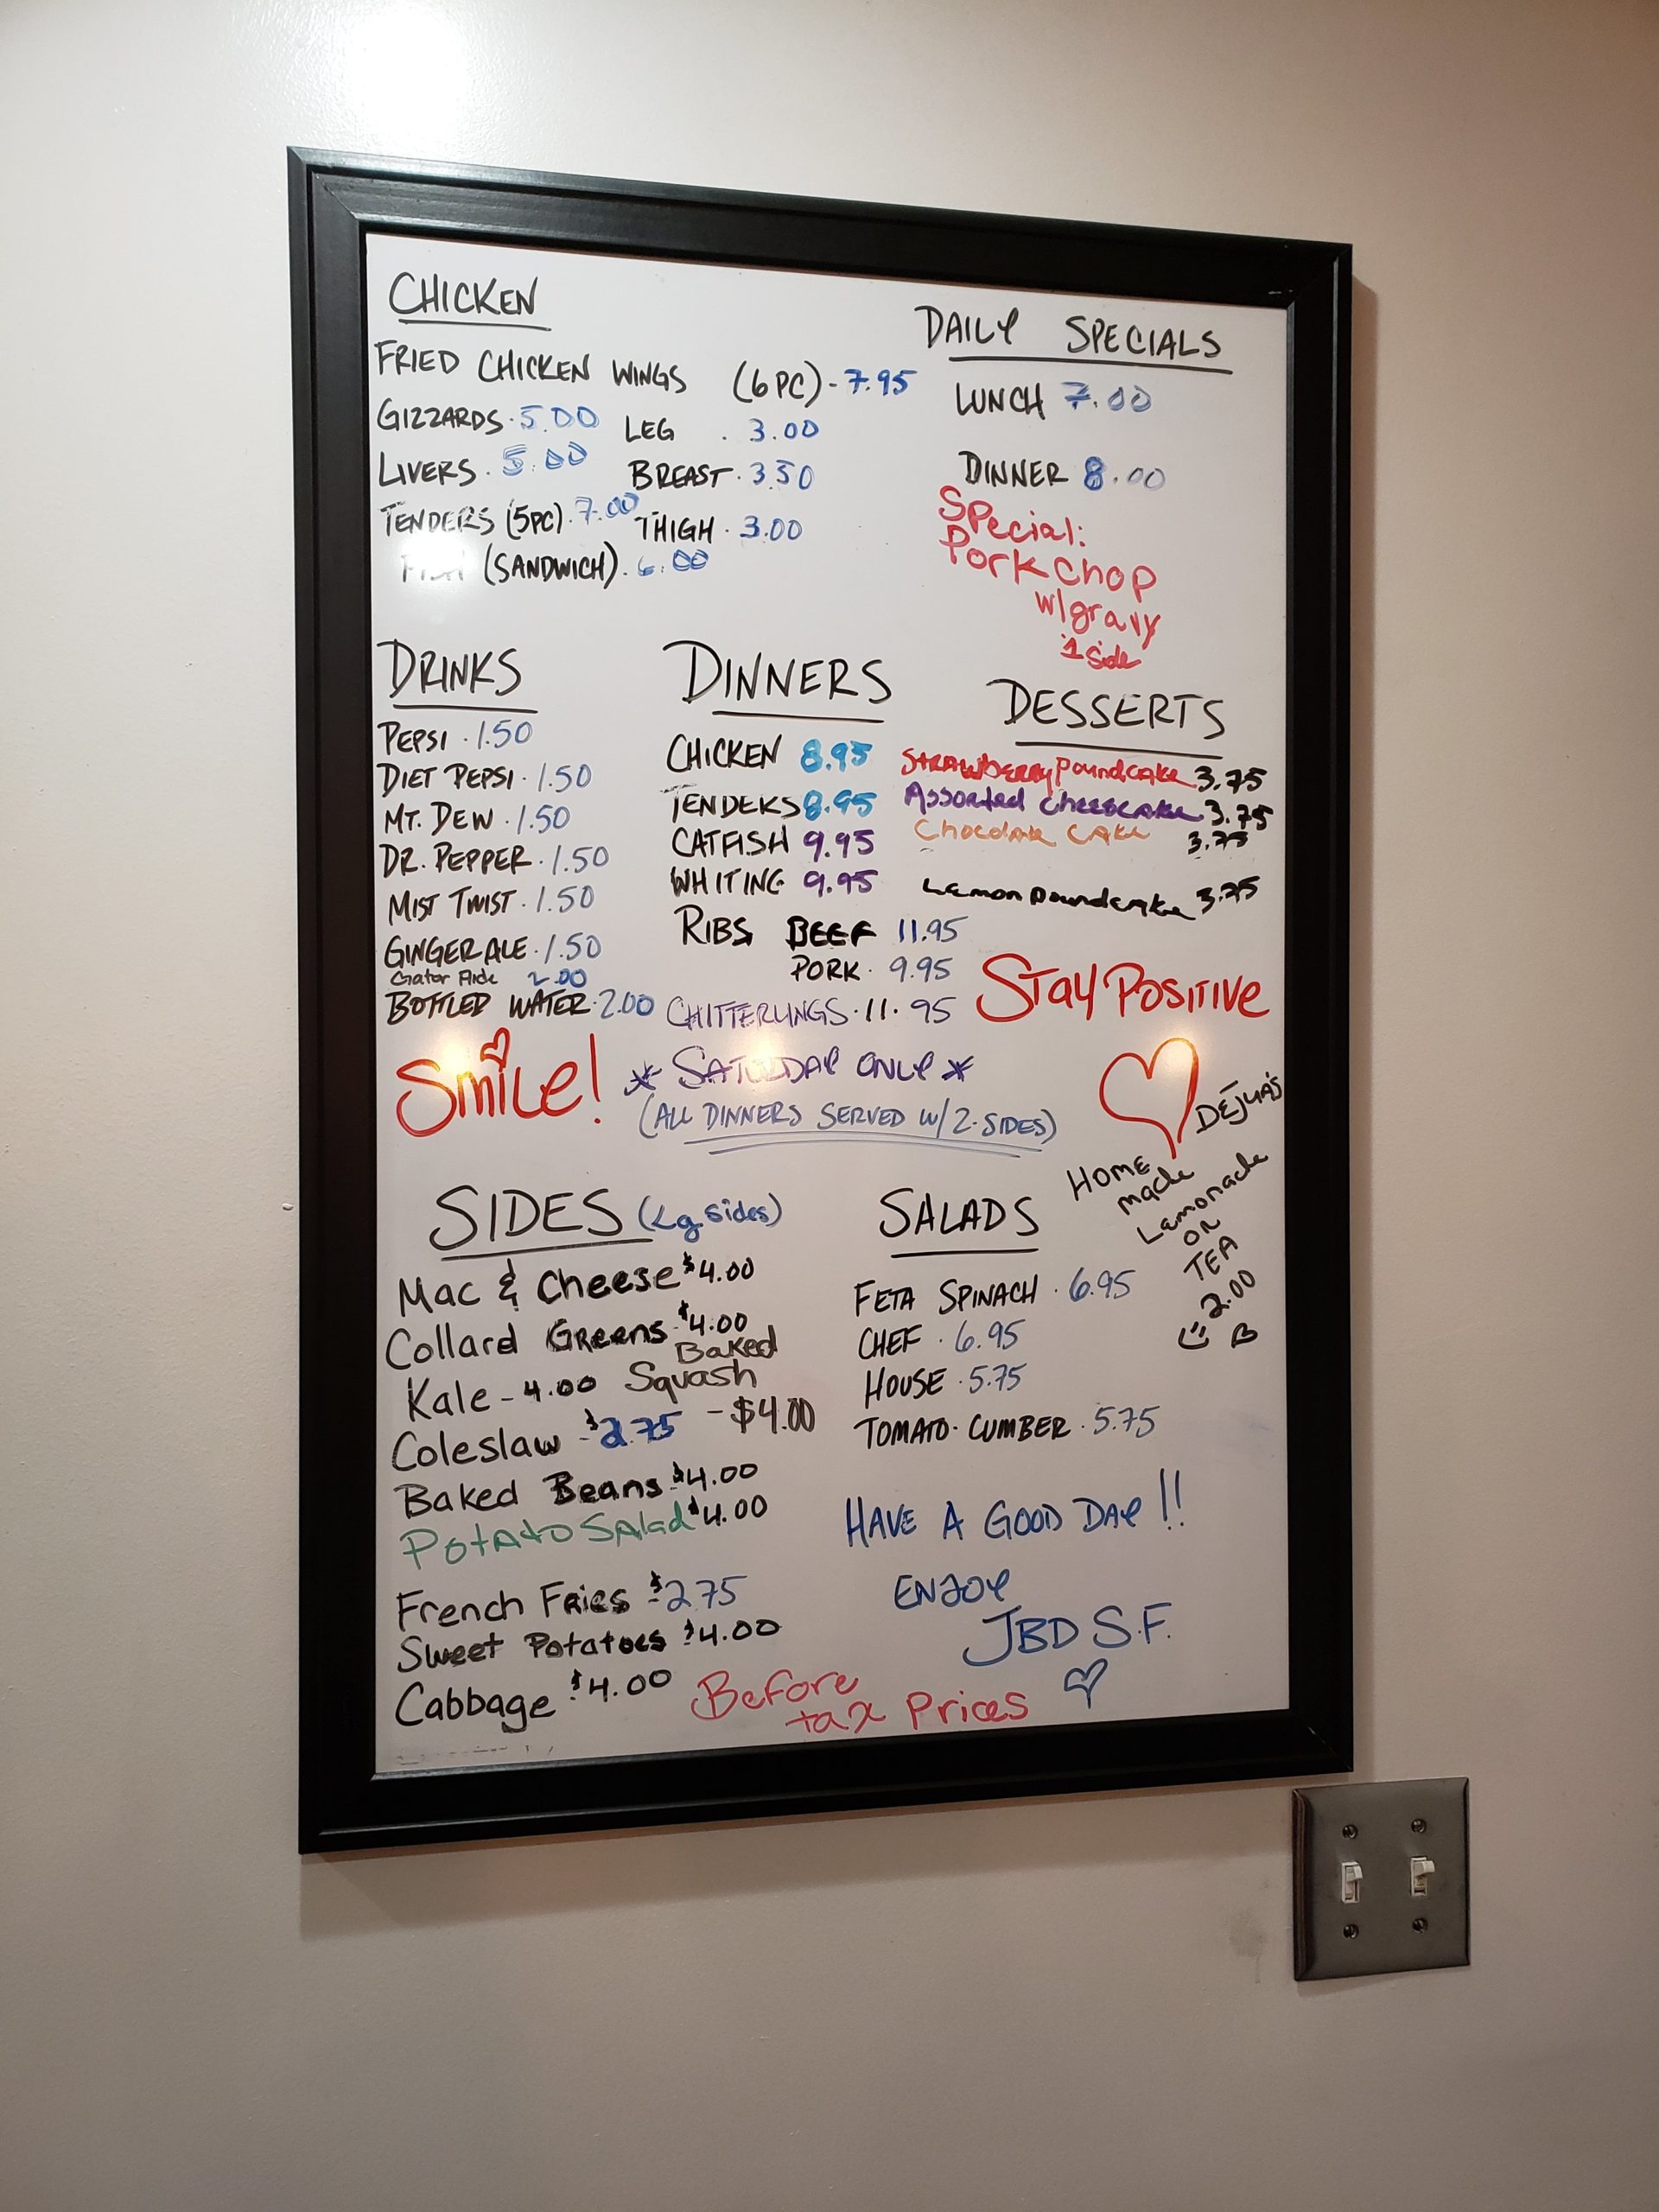 CHICKEN
FRIED CHICKEN WINGS (6PC) - 7.95
GIZZARDS · 5.00 LEG · 3.00
LIVERS · 5.00 BREAST · 3.50
TENDERS (5PC) · 7.00 THIGH · 3.00
FISH (SANDWICH) · 6.00
DAILY SPECIALS
LUNCH 7.00
DINNER 8.00
Special:
Pork Chop
w/gravy
1 Side
DRINKS
PEPSI · 1.50
DIET PEPSI · 1.50
MT. DEW · 1.50
DR. PEPPER · 1.50
MIST TWIST · 1.50
GINGER ALE · 1.50
Gator Aide 2.00
BOTTLED WATER · 2.00
Smile!
DINNERS
CHICKEN 8.95
TENDERS 8.95
CATFISH 9.95
WHITING 9.95
RIBS BEEF 11.95
PORK · 9.95
CHITTERLINGS · 11.95
* SATURDAY ONLY *
(ALL DINNERS SERVED W/ 2-SIDES)
DESSERTS
Strawberry Poundcake 3.75
Assorted Cheesecake 3.75
Chocolate Cake 3.75
Lemon poundcake 3.75
Stay Positive
DEJUA'S
HOME
made
Lemonade
OR
TEA
2.00
SIDES (Lg sides)
Mac & Cheese $4.00
Collard Greens $4.00
Kale - 4.00
Baked
Squash
- $4.00
Coleslaw - $2.75
Baked Beans $4.00
Potato Salad $4.00
French Fries $2.75
Sweet Potatoes $4.00
Cabbage $4.00
Before
tax Prices
SALADS
FETA SPINACH · 6.95
CHEF · 6.95
HOUSE · 5.75
TOMATO-CUMBER · 5.75
HAVE A GOOD DAY!!
ENJOY
JBD S.F.